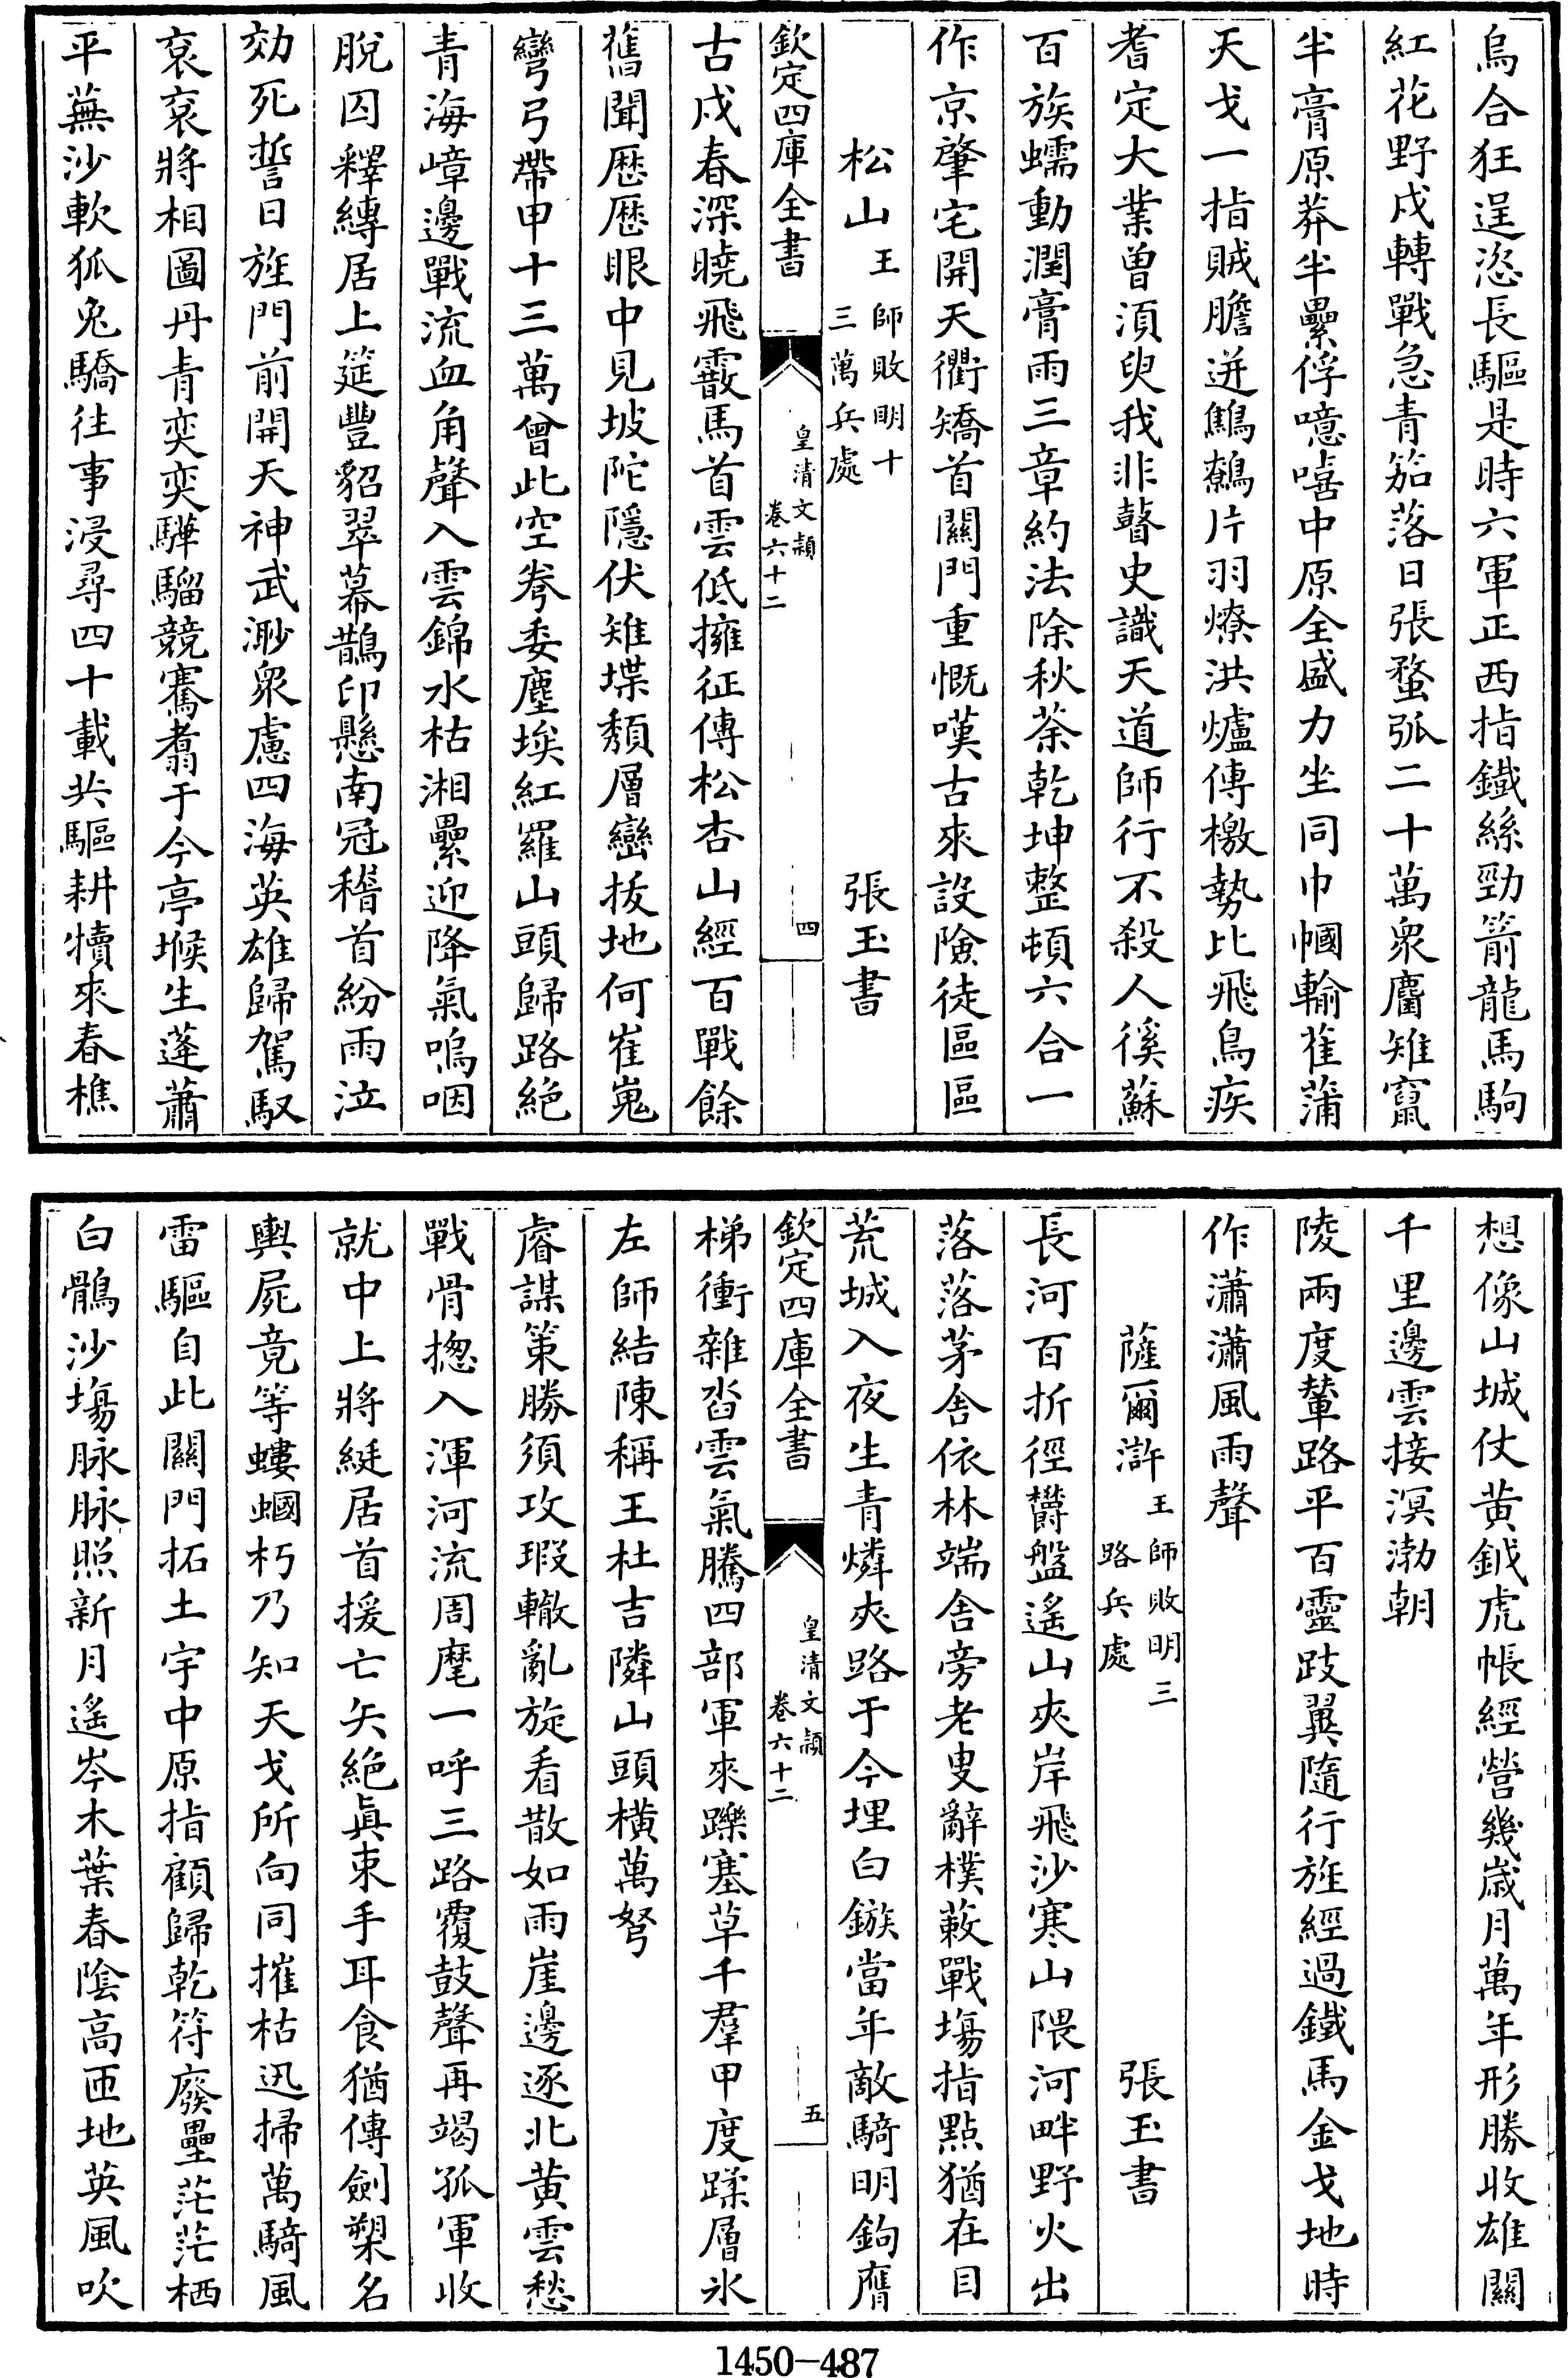 烏合狂逞恣長驅是時六軍正西指鐵絲勁箭龍馬駒
紅花野戍轉戰急青笳落日張蝥弧二十萬衆麕雉竄
半膏原莽半纍俘噫嘻中原全盛力坐同巾幗輸萑蒲
天戈一指賊膽迸鷦鷯片羽燎洪爐傳檄勢比飛鳥疾
耆定大業曾須臾我非瞽史識天道師行不殺人徯蘇
百族蠕動潤膏雨三章約法除秋荼乾坤整頓六合一
作京肇宅開天衢矯首關門重慨嘆古來設險徒區區
松山王師敗明十三萬兵處 張玉書
欽定四庫全書 皇清文穎卷六十二 四
古戍春深曉飛霰馬首雲低擁征傳松杏山經百戰餘
舊聞歷歷眼中見坡陀隱伏雉堞頹層巒拔地何崔嵬
彎弓帶甲十三萬曾此空拳委塵埃紅羅山頭歸路絕
青海嶂邊戰流血角聲入雲錦水枯湘纍迎降氣嗚咽
脫囚釋縳居上筵豐貂翠幕鵲印懸南冠稽首紛雨泣
効死誓日旌門前開天神武渺衆慮四海英雄歸駕馭
袞袞將相圖丹青奕奕驊騮競騫翥于今亭堠生蓬蕭
平蕪沙軟狐兔驕往事浸尋四十載共驅耕犢來春樵
想像山城仗黃鉞虎帳經營幾歲月萬年形勝收雄關
千里邊雲接溟渤朝
陵兩度輦路平百靈跂翼隨行旌經過鐵馬金戈地時
作瀟瀟風雨聲
薩爾滸王師敗明三路兵處 張玉書
長河百折徑欝盤遙山夾岸飛沙寒山隈河畔野火出
落落茅舍依林端舍旁老叟辭樸蔌戰塲指點猶在目
荒城入夜生青燐夾路于今埋白鏃當年敵騎明鉤膺
欽定四庫全書 皇清文穎卷六十二 五
梯衝雜沓雲氣騰四部軍來躒塞草千羣甲度蹂層氷
左師結陳稱王杜吉隣山頭橫萬弩
睿謀策勝須攻瑕轍亂旋看散如雨崖邊逐北黃雲愁
戰骨摠入渾河流周麾一呼三路覆鼓聲再竭孤軍收
就中上將綎居首援亡矢絕眞束手耳食猶傳劍槊名
輿屍竟等螻蟈朽乃知天戈所向同摧枯迅掃萬騎風
雷驅自此關門拓土宇中原指顧歸乾符廢壘茫茫栖
白鶻沙塲脉脉照新月遙岑木葉春陰高匝地英風吹
1450-487